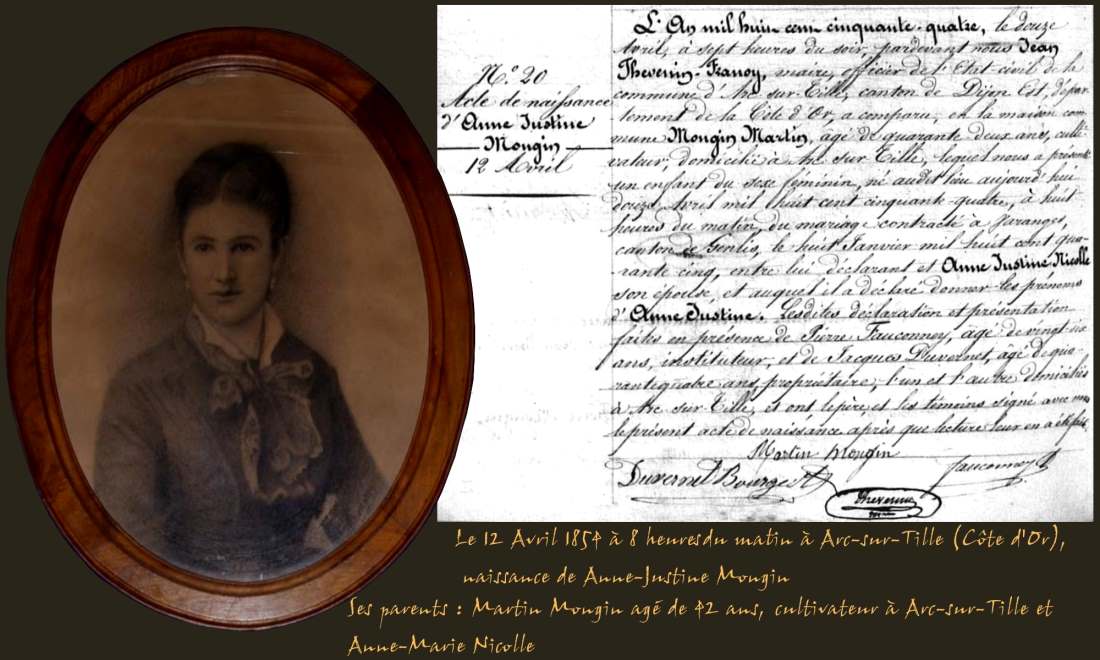 N.º 20
Acte de naissance
d'Anne Justine
Mongin
12 Avril
L'An mil huit cent cinquante-quatre, le douze
Avril, à sept heures du soir, pardevant nous Jean
Thevenin-Franoy, maire, officier de l'Etat-civil de la
commune d'Arc-sur-Tille, canton de Dijon Est, dépar-
tement de la Côte d'Or, a comparu, en la maison com-
mune Mongin Martin, âgé de quarante deux ans, culti-
vateur, domicilié à Arc sur Tille, lequel nous a présenté
un enfant du sexe féminin, né audit lieu aujourd'hui
douze Avril mil huit cent cinquante-quatre, à huit
heures du matin, du mariage contracté à
canton de Genlis, le huit Janvier mil huit cent qua-
rante cinq, entre lui déclarant et Anne Justine Nicolle
son épouse, et auquel il a déclaré donner les prénoms
d'Anne Justine. Lesdites déclaration et présentation
faites en présence de Pierre Fauconney, âgé de
ans, instituteur, et de Jacques Duvernet, âgé de qua-
rante quatre ans, propriétaire, l'un et l'autre domiciliés
à Arc sur Tille, et ont le père et les témoins signé avec nous
le présent acte de naissance après que lecture leur en a été faite.
Martin Mongin
Duvernet Bourgeot Fauconney
Thevenin
Le 12 Avril 1854 à 8 heuresdu matin à Arc-sur-Tille (Côte d'Or),
naissance de Anne-Justine Mongin
Ses parents : Martin Mongin agé de 42 ans, cultivateur à Arc-sur-Tille et
Anne-Marie Nicolle